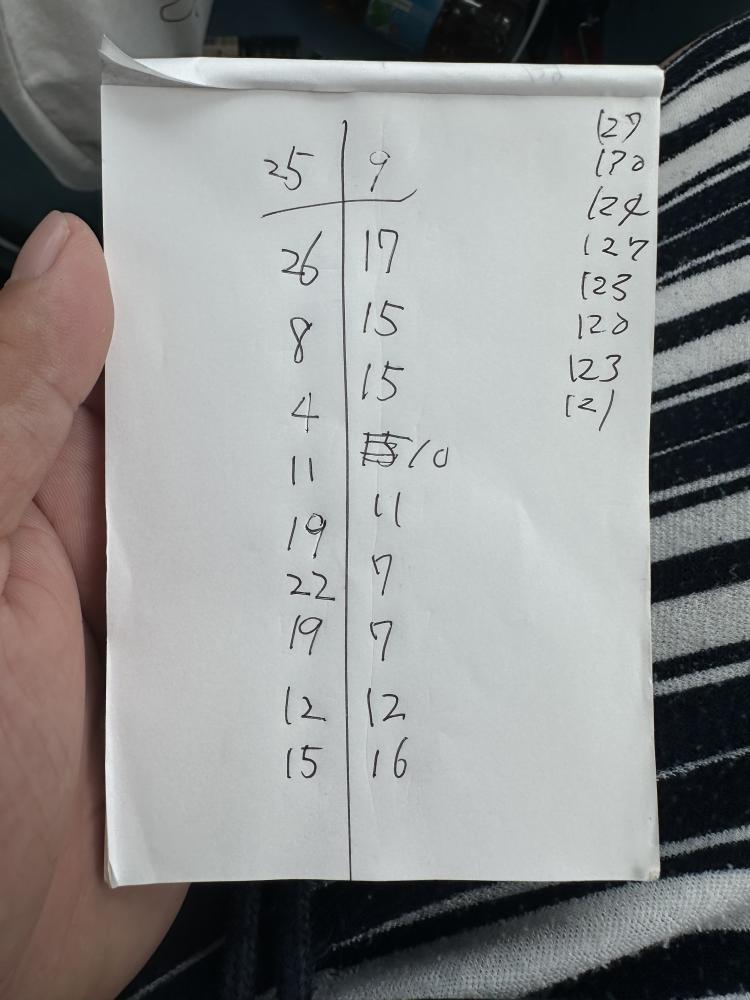 25 9
26 17
8 15
4 15
11 10
19 11
22 7
19 7
12 12
15 16
127
170
124
127
123
120
123
121